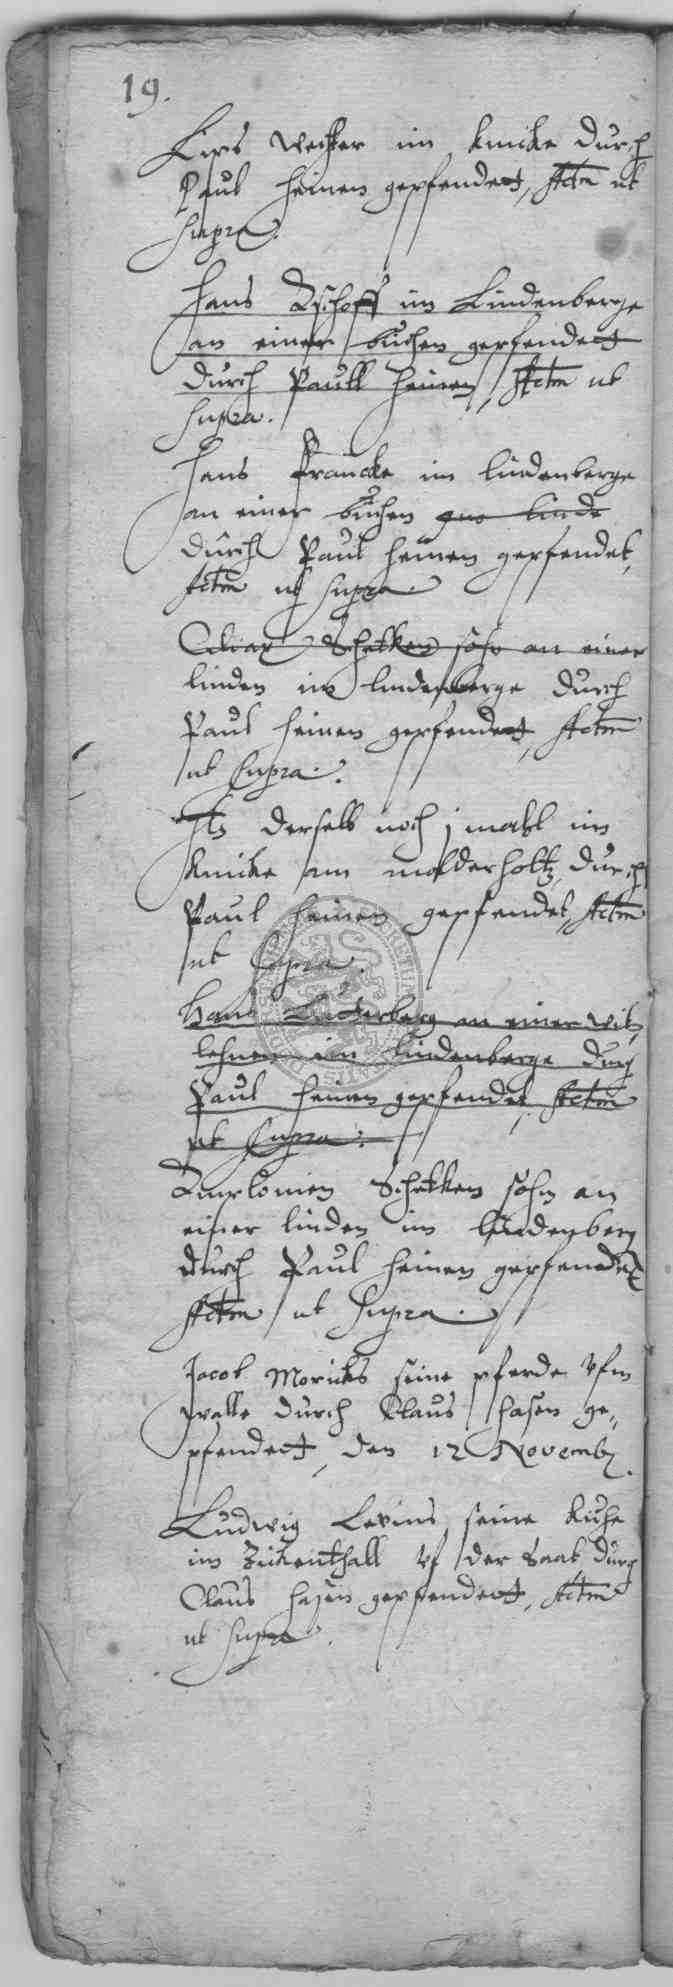 19.
Lips Wechter im Knicke durch
Paul Heinen gepfendett, Actm ut
supra.
Hans Bischoff im Lindenberge
an einer buchen gepfendett
durch Paull Heinen, Actm ut
supra.
Hans Francke im lindenberge
an einer buchen linde
durch Paul Heinen gepfendet,
Actm ut supra.
Schetken sohn an einer
linden im lindenberge durch
Paul Heinen gepfendett, Actm
ut supra.
Itz derselb noch j mahl im
Knicke am molderholtz, durch
Paul Heinen gepfendet, Actm
ut supra.
Hans Luderberg an einer witz
lehnen im lindenberge durch
Paul Heinen gepfendet, Actm
ut supra.
Schetken sohn an
einer linden im lindenberg
durch Paul Heinen gepfendet
Actm ut supra.
Jacob Moricks seine pferde vfm
walle durch Claus Hasen ge„
pfendett, den 12 Novemb.
Ludwig Levins seine Kuhe
im vf der Saat durch
Claus Hasen gepfendett, Actm
ut supra.